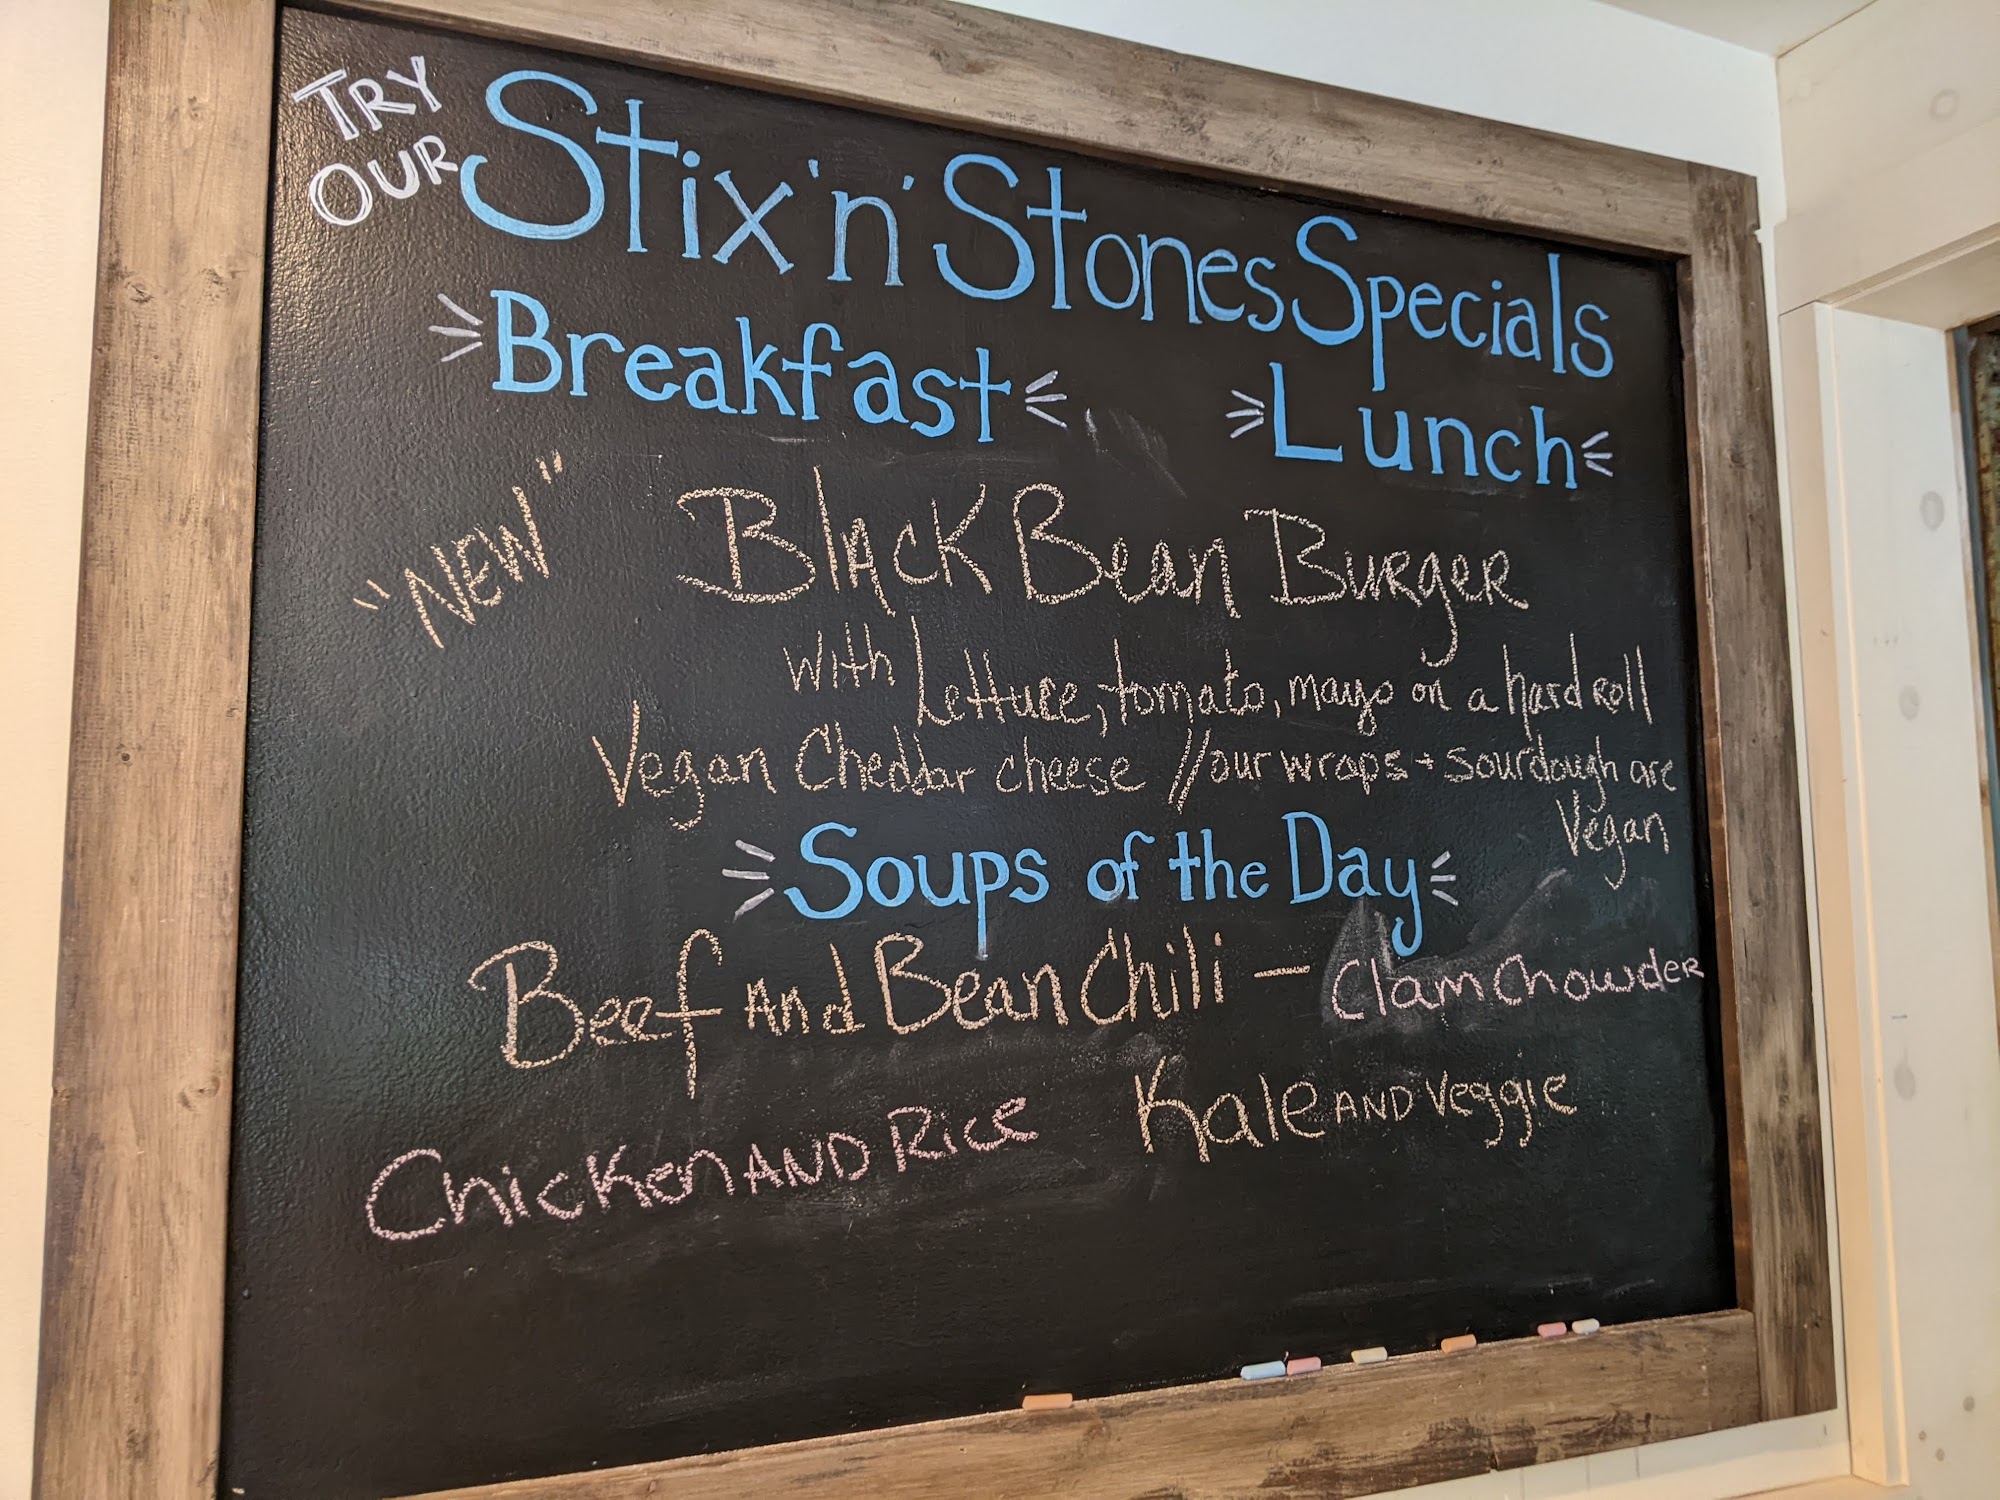 TRY OUR Stix 'n' Stones Specials
Breakfast Lunch
"NEW" Black Bean Burger
with Lettuce, tomato, mayo on a hard roll
Vegan Cheddar cheese // our wraps + sourdough are
Vegan
Soups of the Day
Beef And Bean Chili — Clam Chowder
Chicken AND Rice Kale AND Veggie